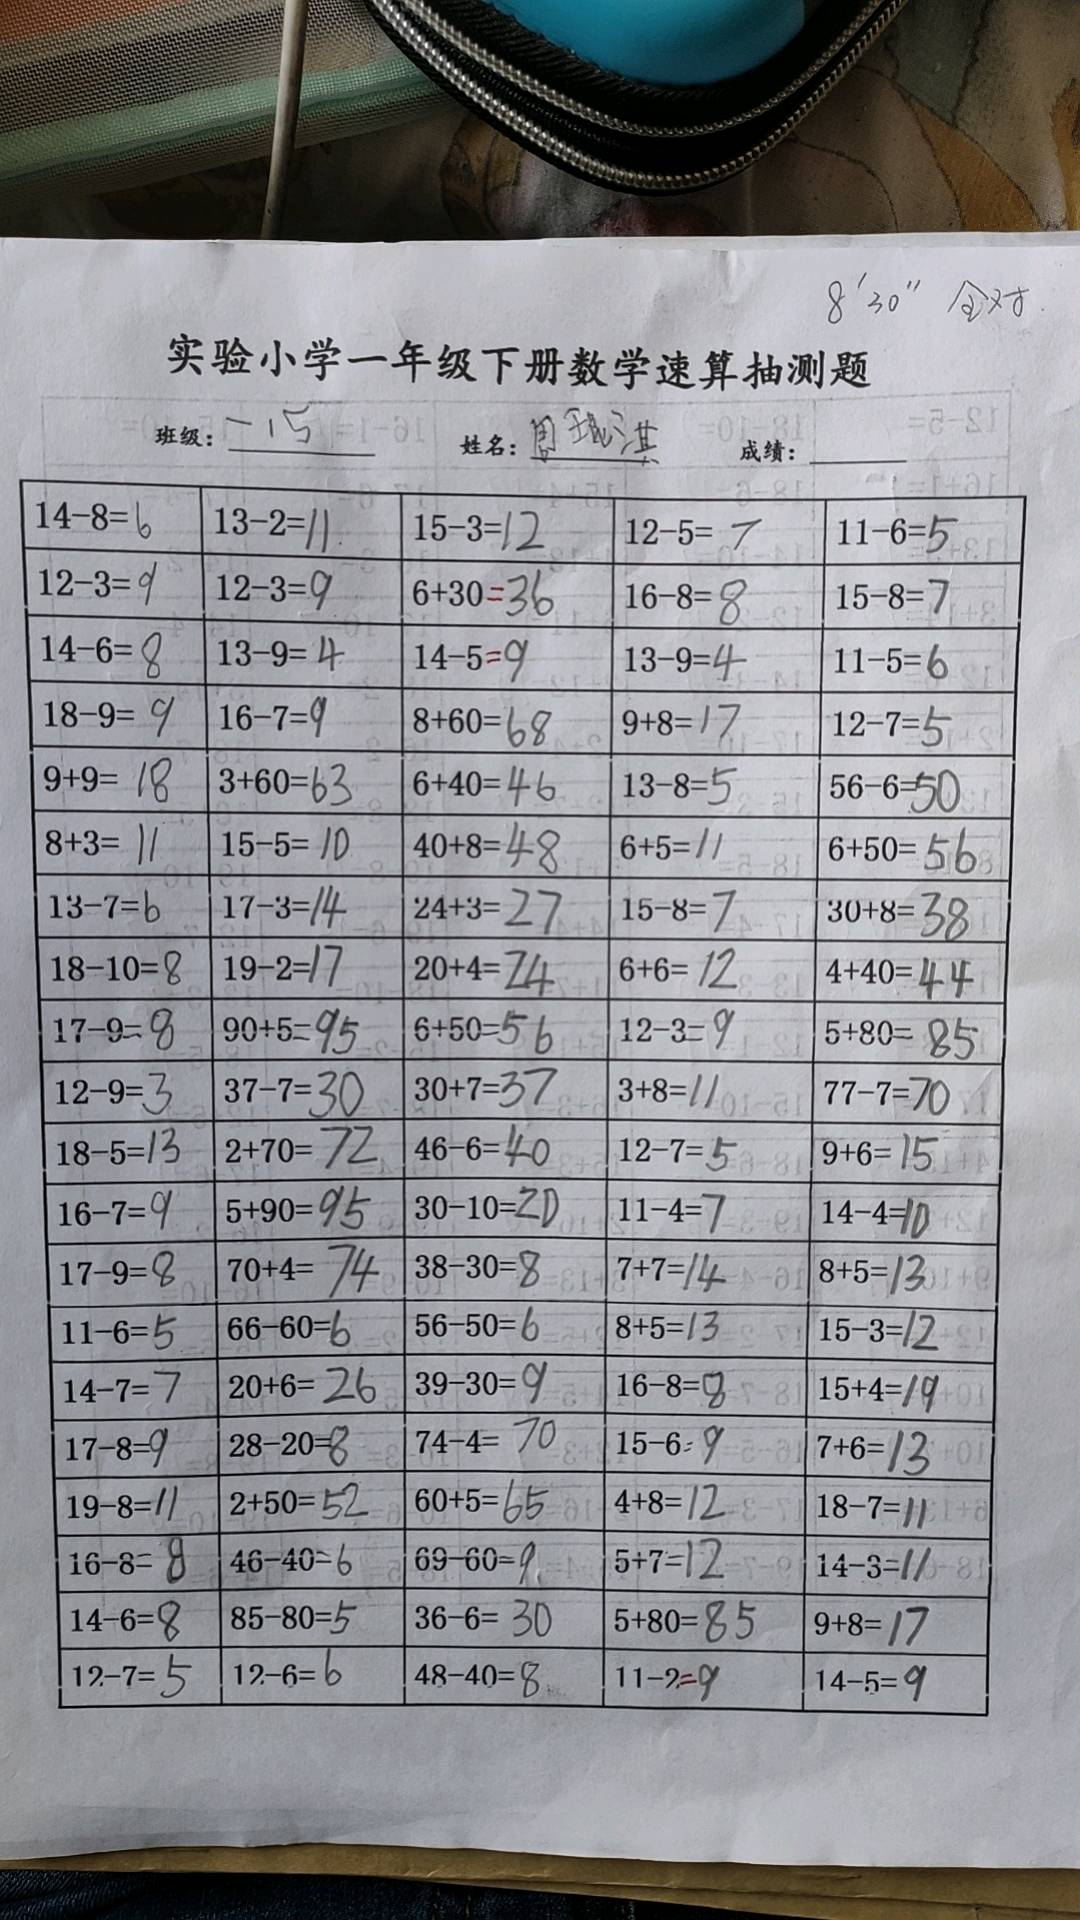 8′30″ 全对.
实验小学一年级下册数学速算抽测题
班级: 一15 姓名: 周琨淇 成绩:
14-8=6 13-2=11 15-3=12 12-5=7 11-6=5
12-3=9 12-3=9 6+30=36 16-8=8 15-8=7
14-6=8 13-9=4 14-5=9 13-9=4 11-5=6
18-9=9 16-7=9 8+60=68 9+8=17 12-7=5
9+9=18 3+60=63 6+40=46 13-8=5 56-6=50
8+3=11 15-5=10 40+8=48 6+5=11 6+50=56
13-7=6 17-3=14 24+3=27 15-8=7 30+8=38
18-10=8 19-2=17 20+4=24 6+6=12 4+40=44
17-9=8 90+5=95 6+50=56 12-3=9 5+80=85
12-9=3 37-7=30 30+7=37 3+8=11 77-7=70
18-5=13 2+70=72 46-6=40 12-7=5 9+6=15
16-7=9 5+90=95 30-10=20 11-4=7 14-4=10
17-9=8 70+4=74 38-30=8 7+7=14 8+5=13
11-6=5 66-60=6 56-50=6 8+5=13 15-3=12
14-7=7 20+6=26 39-30=9 16-8=8 15+4=19
17-8=9 28-20=8 74-4=70 15-6=9 7+6=13
19-8=11 2+50=52 60+5=65 4+8=12 18-7=11
16-8=8 46-40=6 69-60=9 5+7=12 14-3=11
14-6=8 85-80=5 36-6=30 5+80=85 9+8=17
12-7=5 12-6=6 48-40=8 11-2=9 14-5=9